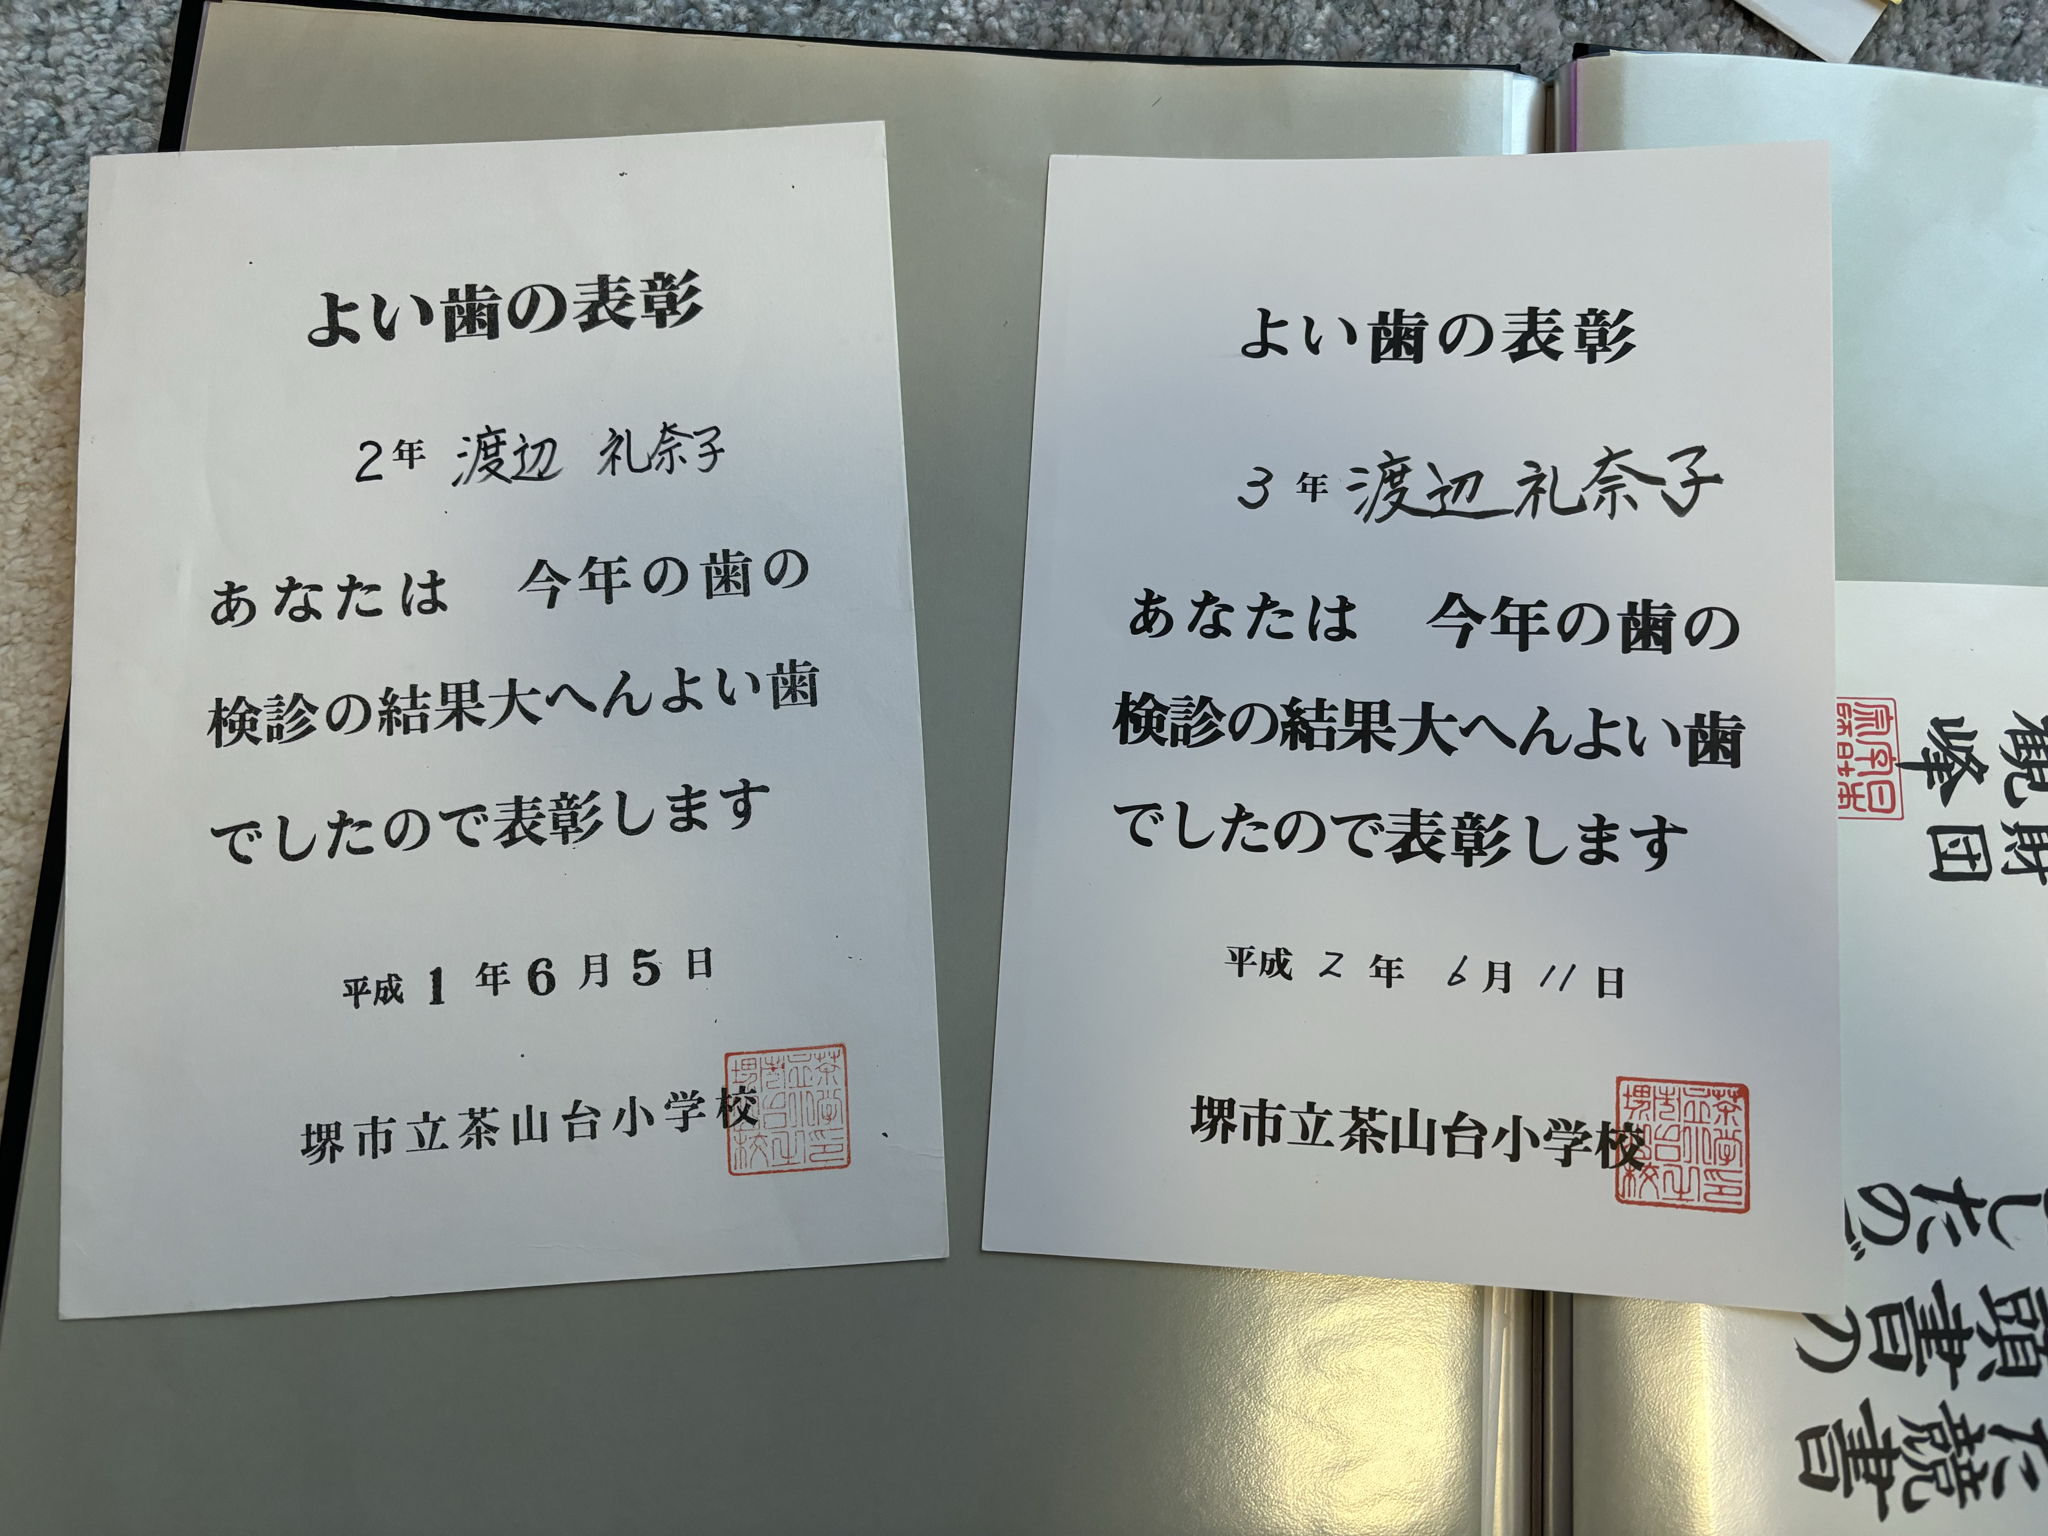 よい歯の表彰
2年 渡辺 礼奈子
あなたは 今年の歯の
検診の結果大へんよい歯
でしたので表彰します
平成 1 年 6 月 5 日
堺市立茶山台小学校
よい歯の表彰
3 年 渡辺 礼奈子
あなたは 今年の歯の
検診の結果大へんよい歯
でしたので表彰します
平成 2 年 6月 11 日
堺市立茶山台小学校
観
峰
財
団
したの
書の
競書